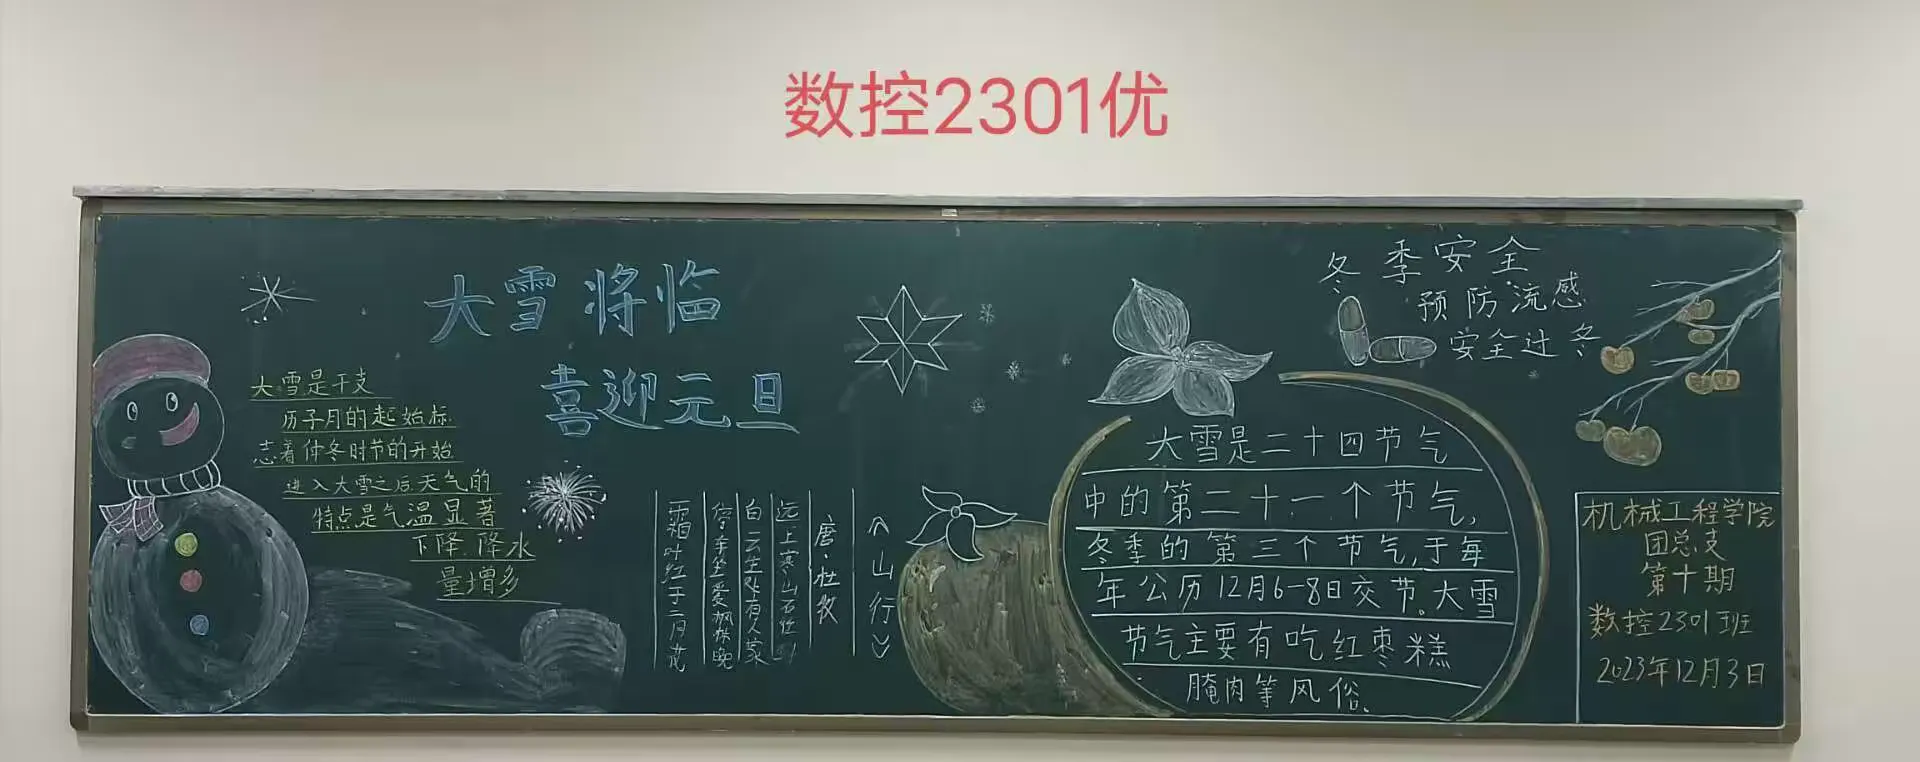 数控2301优
大雪将临
喜迎元旦
大雪是干支
历子月的起始标
志着仲冬时节的开始
进入大雪之后,天气的
特点是气温显著
下降、降水
量增多
《山行》
唐·杜牧
远上寒山石径
白云生处有人家
停车坐爱枫林晚
霜叶红于二月花
冬季安全
预防流感
安全过冬
大雪是二十四节气
中的第二十一个节气,
冬季的第三个节气,于每
年公历12月6-8日交节。大雪
节气主要有吃红枣糕
腌肉等风俗、
机械工程学院
团总支
第十期
数控2301班
2023年12月3日